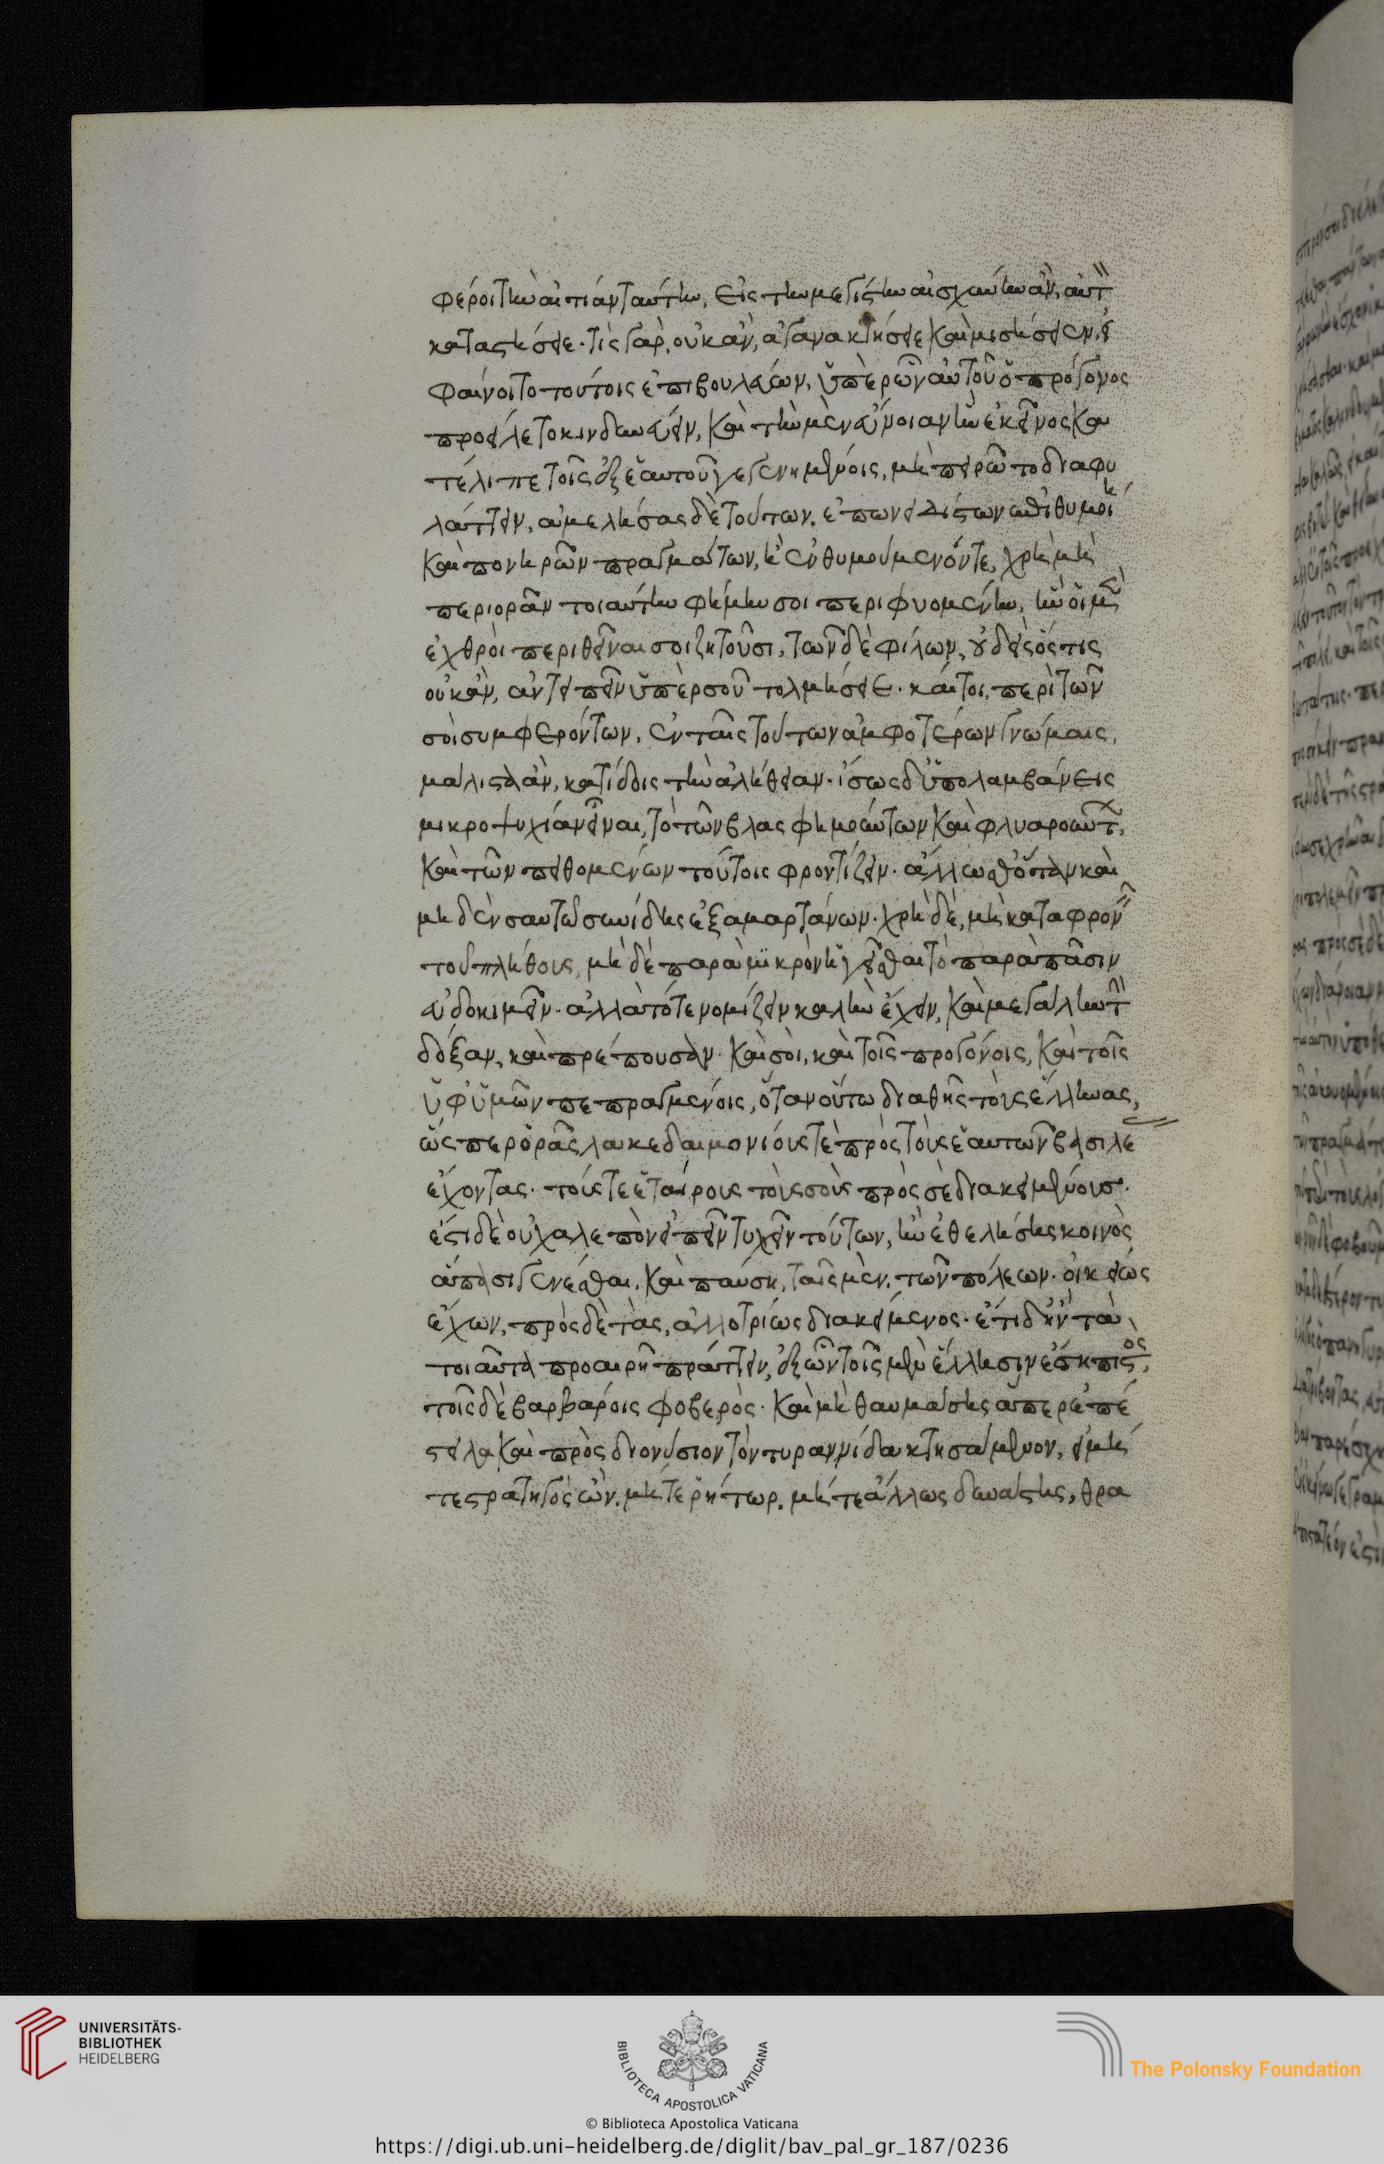 φέροι τὴν αἰτίαν ταύτην, εἰς τὴν μεγίστην αἰσχύνην ἂν, αὐτ
καταστήσειε. τίς γὰρ, οὐκ ἂν, ἀγανακτήσειε καὶ μισήσειεν, εἰ
φαίνοιτο τούτοις ἐπιβουλεύων, ὑπὲρ ὧν αὐτοῦ ὁ πρόγονος
προείλετο κινδυνεύειν, καὶ τὴν μὲν εὔνοιαν ἣν ἐκεῖνος κα
τέλιπε τοῖς ἐξ ἑαυτοῦ γεγενημένοις, μὴ πειρῶτο διαφυ
λάττειν, ἀμελήσας δὲ τούτων, ἐπονειδίστων ἐπιθυμοί
καὶ πονηρῶν πραγμάτων, ἐνθυμούμενόν τε, χρὴ μὴ
περιορᾶν τοιαύτην φήμην σοι περιφυομένην, ἣν οἱ μὲν
ἐχθροὶ περιθεῖναι σοι ζητοῦσι, τῶν δὲ φίλων, οὐδεὶς ὅστις
οὐκ ἂν, ἀντειπεῖν ὑπὲρ σοῦ τολμήσειε. καίτοι, περὶ τῶν
σοὶ συμφερόντων, ἐν ταῖς τούτων ἀμφοτέρων γνώμαις,
μάλιστ' ἂν, κατίδοις τὴν ἀλήθειαν. ἴσως δ' ὑπολαμβάνεις
μικροψυχίαν εἶναι, τὸ τῶν βλασφημούντων καὶ φλυαρούντ,
καὶ τῶν πειθομένων τούτοις φροντίζειν. ἄλλως θ' ὅταν καὶ
μηδὲν σαυτῷ συνίδης ἐξαμαρτάνων. χρὴ δὲ, μὴ καταφρον
τοῦ πλήθους, μὴ δὲ παρὰ μικρὸν ἡγεῖσθαι τὸ παρὰ πᾶσιν
εὐδοκιμεῖν. ἀλλὰ τότε νομίζειν καλὴν ἔχειν, καὶ μεγάλην τ
δόξαν, καὶ πρέπουσαν. καὶ σοὶ, καὶ τοῖς προγόνοις, καὶ τοῖς
ὑφ' ὑμῶν πεπραγμένοις, ὅταν οὕτω διαθῇς τοὺς ἕλληνας,
ὥσπερ ὁρᾷς λακεδαιμονίους τὲ πρὸς τοὺς ἑαυτῶν βασιλε
ἔχοντας. τούς τε ἑταίρους τοὺς σοὺς πρὸς σὲ διακειμένους.
ἔστι δὲ οὐ χαλεπὸν εἰπεῖν τυχεῖν τούτων, ἢν ἐθελήσῃς κοινὸς
ἅπασι γενέσθαι, καὶ παύσῃ, ταῖς μὲν, τῶν πόλεων. οἰκείως
ἔχων, πρὸς δὲ τὰς, ἀλλοτρίως διακείμενος. ἔτι δ' ἢν τὰ
τοιαῦτα προαιρῇ πράττειν, ἐξ ὧν τοῖς μὲν ἕλλησιν ἔσῃ πιστὸς,
τοῖς δὲ βαρβάροις φοβερὸς. καὶ μὴ θαυμάσῃς ἅπερ ἐπέ
στειλα καὶ πρὸς διονύσιον τὴν τυραννίδα κτησάμενον, εἰ μή
τε στρατηγὸς ὢν, μήτε ῥήτωρ, μήτε ἄλλως δυνάστης, θρα
UNIVERSITÄTS-
BIBLIOTHEK
HEIDELBERG
BIBLIOTECA APOSTOLICA VATICANA
The Polonsky Foundation
© Biblioteca Apostolica Vaticana
https://digi.ub.uni-heidelberg.de/diglit/bav_pal_gr_187/0236